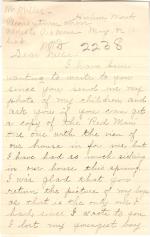 Mr Miller
2238
Dear Miller
I have been
wanting to write to you
since you send me my
photo of my children and
ask you if you can get
a copy of the Red Man
the one with the view of
our house in for me but
I have had so much sickness
in our house this spring,
I was glad that you
return the picture of my boys
as that is the only one I
had, since I wrote to you
I lost my youngest boy